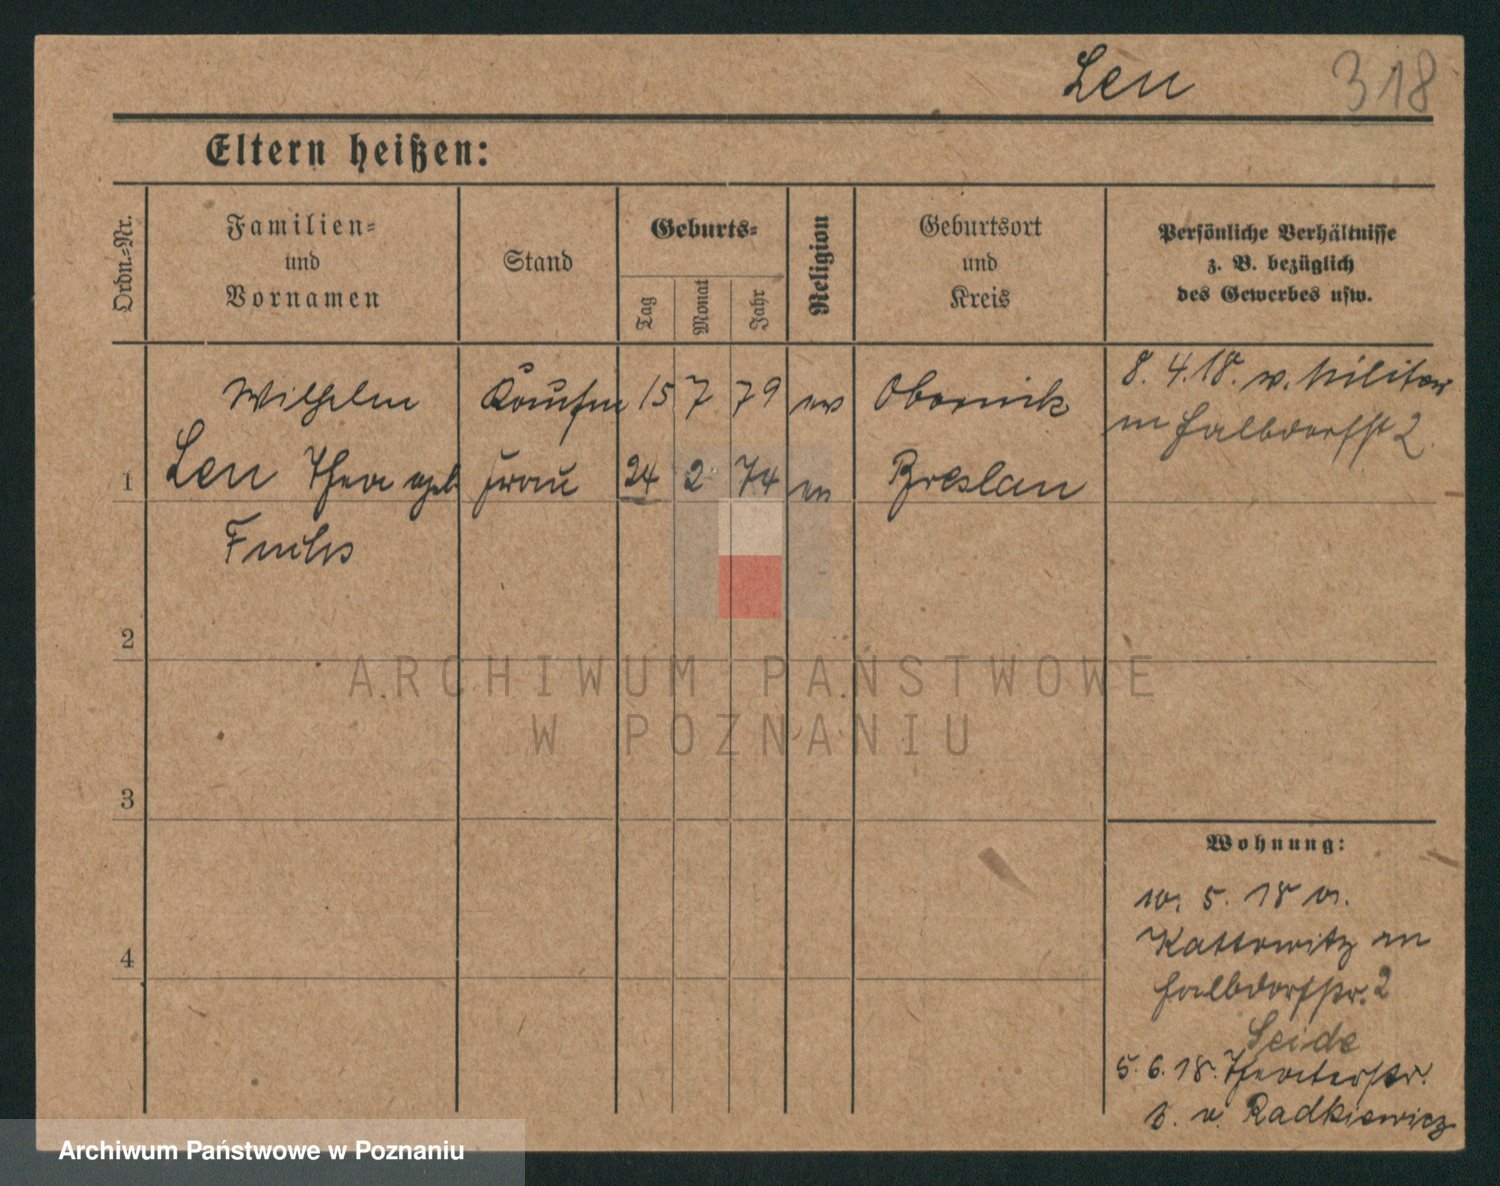 Len 318
Eltern heißen:
Ordn.-Nr.
Familien-
und
Vornamen
Stand
Geburts-
Tag
Monat
Jahr
Religion
Geburtsort
und
Kreis
Persönliche Verhältnisse
z. B. bezüglich
des Gewerbes usw.
Wilhelm Kaufm 15 7 79 ev Obornik 8. 4. 18. v. Militär
in Halbdorfst 2.
1 Len Thea geb Frau 24 2 74 ev Breslau
Fuchs
2
3
4
Wohnung:
10. 5. 18 v.
Kattowitz in
Halbdorfstr. 2
Seide
5. 6. 18. Theaterstr.
3. v. Radkiewicz
ARCHIWUM PAŃSTWOWE
W POZNANIU
Archiwum Państwowe w Poznaniu